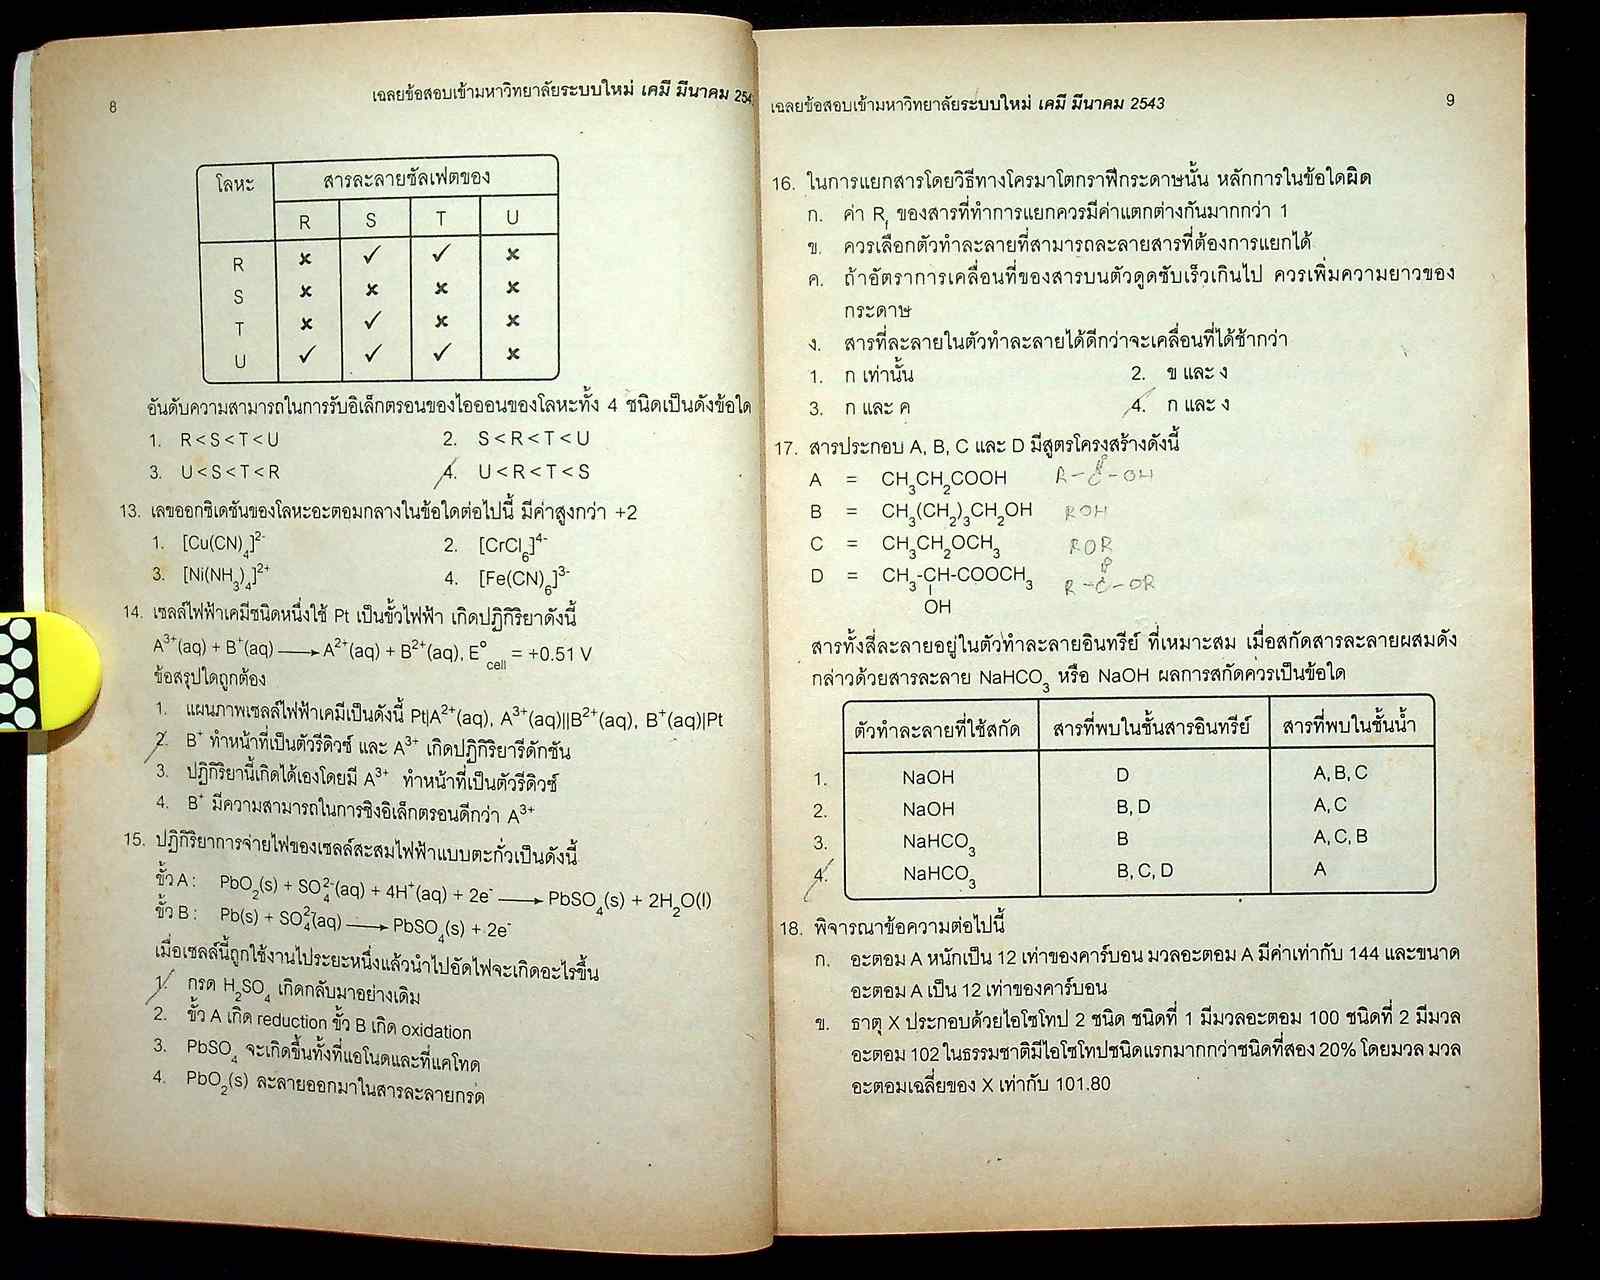 8
เฉลยข้อสอบเข้ามหาวิทยาลัยระบบใหม่ เคมี มีนาคม 254
โลหะ สารละลายซัลเฟตของ
R S T U
R ✗ ✓ ✓ ✗
S ✗ ✗ ✗ ✗
T ✗ ✓ ✗ ✗
U ✓ ✓ ✓ ✗
อันดับความสามารถในการรับอิเล็กตรอนของไอออนของโลหะทั้ง 4 ชนิดเป็นดังข้อใด
1. R<S<T<U 2. S<R<T<U
3. U<S<T<R 4. U<R<T<S
13. เลขออกซิเดชันของโลหะอะตอมกลางในข้อใดต่อไปนี้ มีค่าสูงกว่า +2
1. [Cu(CN)₄]²⁻ 2. [CrCl₆]⁴⁻
3. [Ni(NH₃)₄]²⁺ 4. [Fe(CN)₆]³⁻
14. เซลล์ไฟฟ้าเคมีชนิดหนึ่งใช้ Pt เป็นขั้วไฟฟ้า เกิดปฏิกิริยาดังนี้
A³⁺(aq) + B⁺(aq) ⟶ A²⁺(aq) + B²⁺(aq), E°cell = +0.51 V
ข้อสรุปใดถูกต้อง
1. แผนภาพเซลล์ไฟฟ้าเคมีเป็นดังนี้ Pt|A²⁺(aq), A³⁺(aq)||B²⁺(aq), B⁺(aq)|Pt
2. B⁺ ทำหน้าที่เป็นตัวรีดิวซ์ และ A³⁺ เกิดปฏิกิริยารีดักชัน
3. ปฏิกิริยานี้เกิดได้เองโดยมี A³⁺ ทำหน้าที่เป็นตัวรีดิวซ์
4. B⁺ มีความสามารถในการชิงอิเล็กตรอนดีกว่า A³⁺
15. ปฏิกิริยาการจ่ายไฟของเซลล์สะสมไฟฟ้าแบบตะกั่วเป็นดังนี้
ขั้ว A : PbO₂(s) + SO₄²⁻(aq) + 4H⁺(aq) + 2e⁻ ⟶ PbSO₄(s) + 2H₂O(l)
ขั้ว B : Pb(s) + SO₄²⁻(aq) ⟶ PbSO₄(s) + 2e⁻
เมื่อเซลล์นี้ถูกใช้งานไประยะหนึ่งแล้วนำไปอัดไฟจะเกิดอะไรขึ้น
1. กรด H₂SO₄ เกิดกลับมาอย่างเดิม
2. ขั้ว A เกิด reduction ขั้ว B เกิด oxidation
3. PbSO₄ จะเกิดขึ้นทั้งที่แอโนดและที่แคโทด
4. PbO₂(s) ละลายออกมาในสารละลายกรด
เฉลยข้อสอบเข้ามหาวิทยาลัยระบบใหม่ เคมี มีนาคม 2543
9
16. ในการแยกสารโดยวิธีทางโครมาโตกราฟีกระดาษนั้น หลักการในข้อใดผิด
ก. ค่า Rf ของสารที่ทำการแยกควรมีค่าแตกต่างกันมากกว่า 1
ข. ควรเลือกตัวทำละลายที่สามารถละลายสารที่ต้องการแยกได้
ค. ถ้าอัตราการเคลื่อนที่ของสารบนตัวดูดซับเร็วเกินไป ควรเพิ่มความยาวของ
กระดาษ
ง. สารที่ละลายในตัวทำละลายได้ดีกว่าจะเคลื่อนที่ได้ช้ากว่า
1. ก เท่านั้น 2. ข และ ง
3. ก และ ค 4. ก และ ง
17. สารประกอบ A, B, C และ D มีสูตรโครงสร้างดังนี้
A = CH₃CH₂COOH R-C-OH
B = CH₃(CH₂)₃CH₂OH ROH
C = CH₃CH₂OCH₃ ROR
D = CH₃-CH-COOCH₃ R-C-OR
OH
สารทั้งสี่ละลายอยู่ในตัวทำละลายอินทรีย์ ที่เหมาะสม เมื่อสกัดสารละลายผสมดัง
กล่าวด้วยสารละลาย NaHCO₃ หรือ NaOH ผลการสกัดควรเป็นข้อใด
ตัวทำละลายที่ใช้สกัด สารที่พบในชั้นสารอินทรีย์ สารที่พบในชั้นน้ำ
1. NaOH D A, B, C
2. NaOH B, D A, C
3. NaHCO₃ B A, C, B
4. NaHCO₃ B, C, D A
18. พิจารณาข้อความต่อไปนี้
ก. อะตอม A หนักเป็น 12 เท่าของคาร์บอน มวลอะตอม A มีค่าเท่ากับ 144 และขนาด
อะตอม A เป็น 12 เท่าของคาร์บอน
ข. ธาตุ X ประกอบด้วยไอโซโทป 2 ชนิด ชนิดที่ 1 มีมวลอะตอม 100 ชนิดที่ 2 มีมวล
อะตอม 102 ในธรรมชาติมีไอโซโทปชนิดแรกมากกว่าชนิดที่สอง 20% โดยมวล มวล
อะตอมเฉลี่ยของ X เท่ากับ 101.80